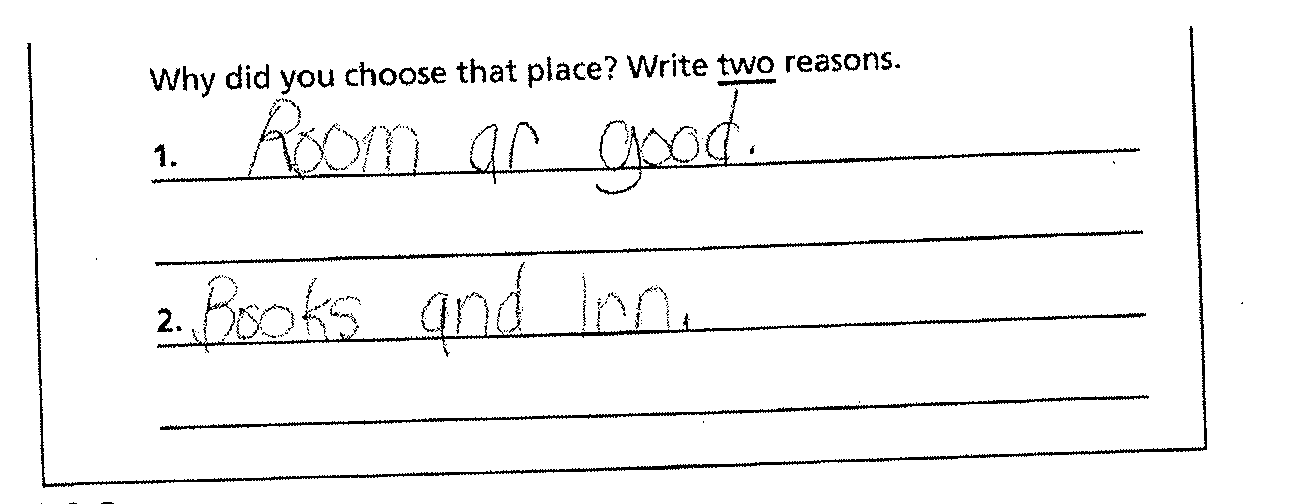 Why did you choose that place? Write two reasons.
1. Room ar good.
2. Books and Inn.